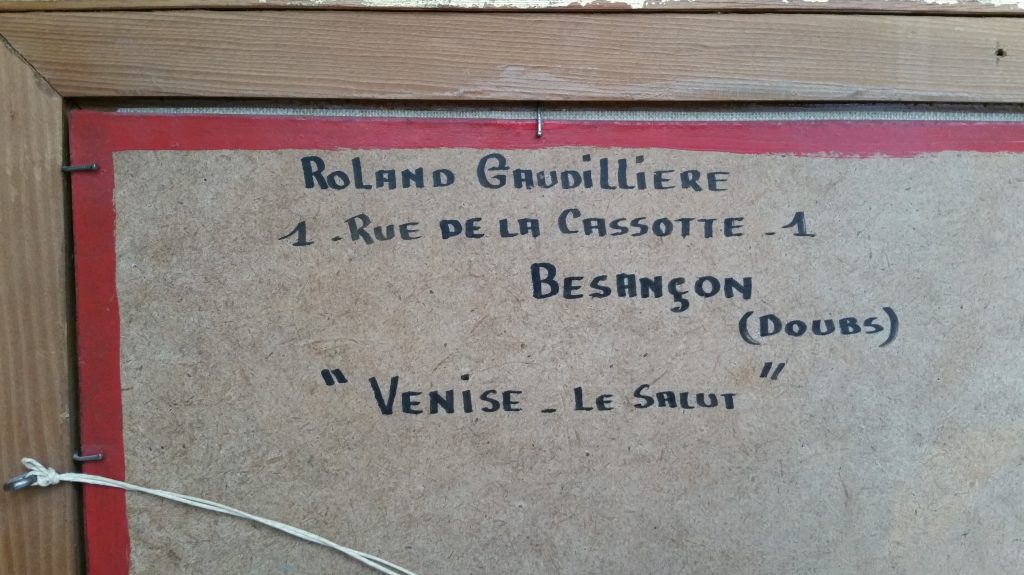 Roland Gaudilliere
1 - Rue de la Cassotte - 1
Besançon
(Doubs)
" Venise - Le Salut "